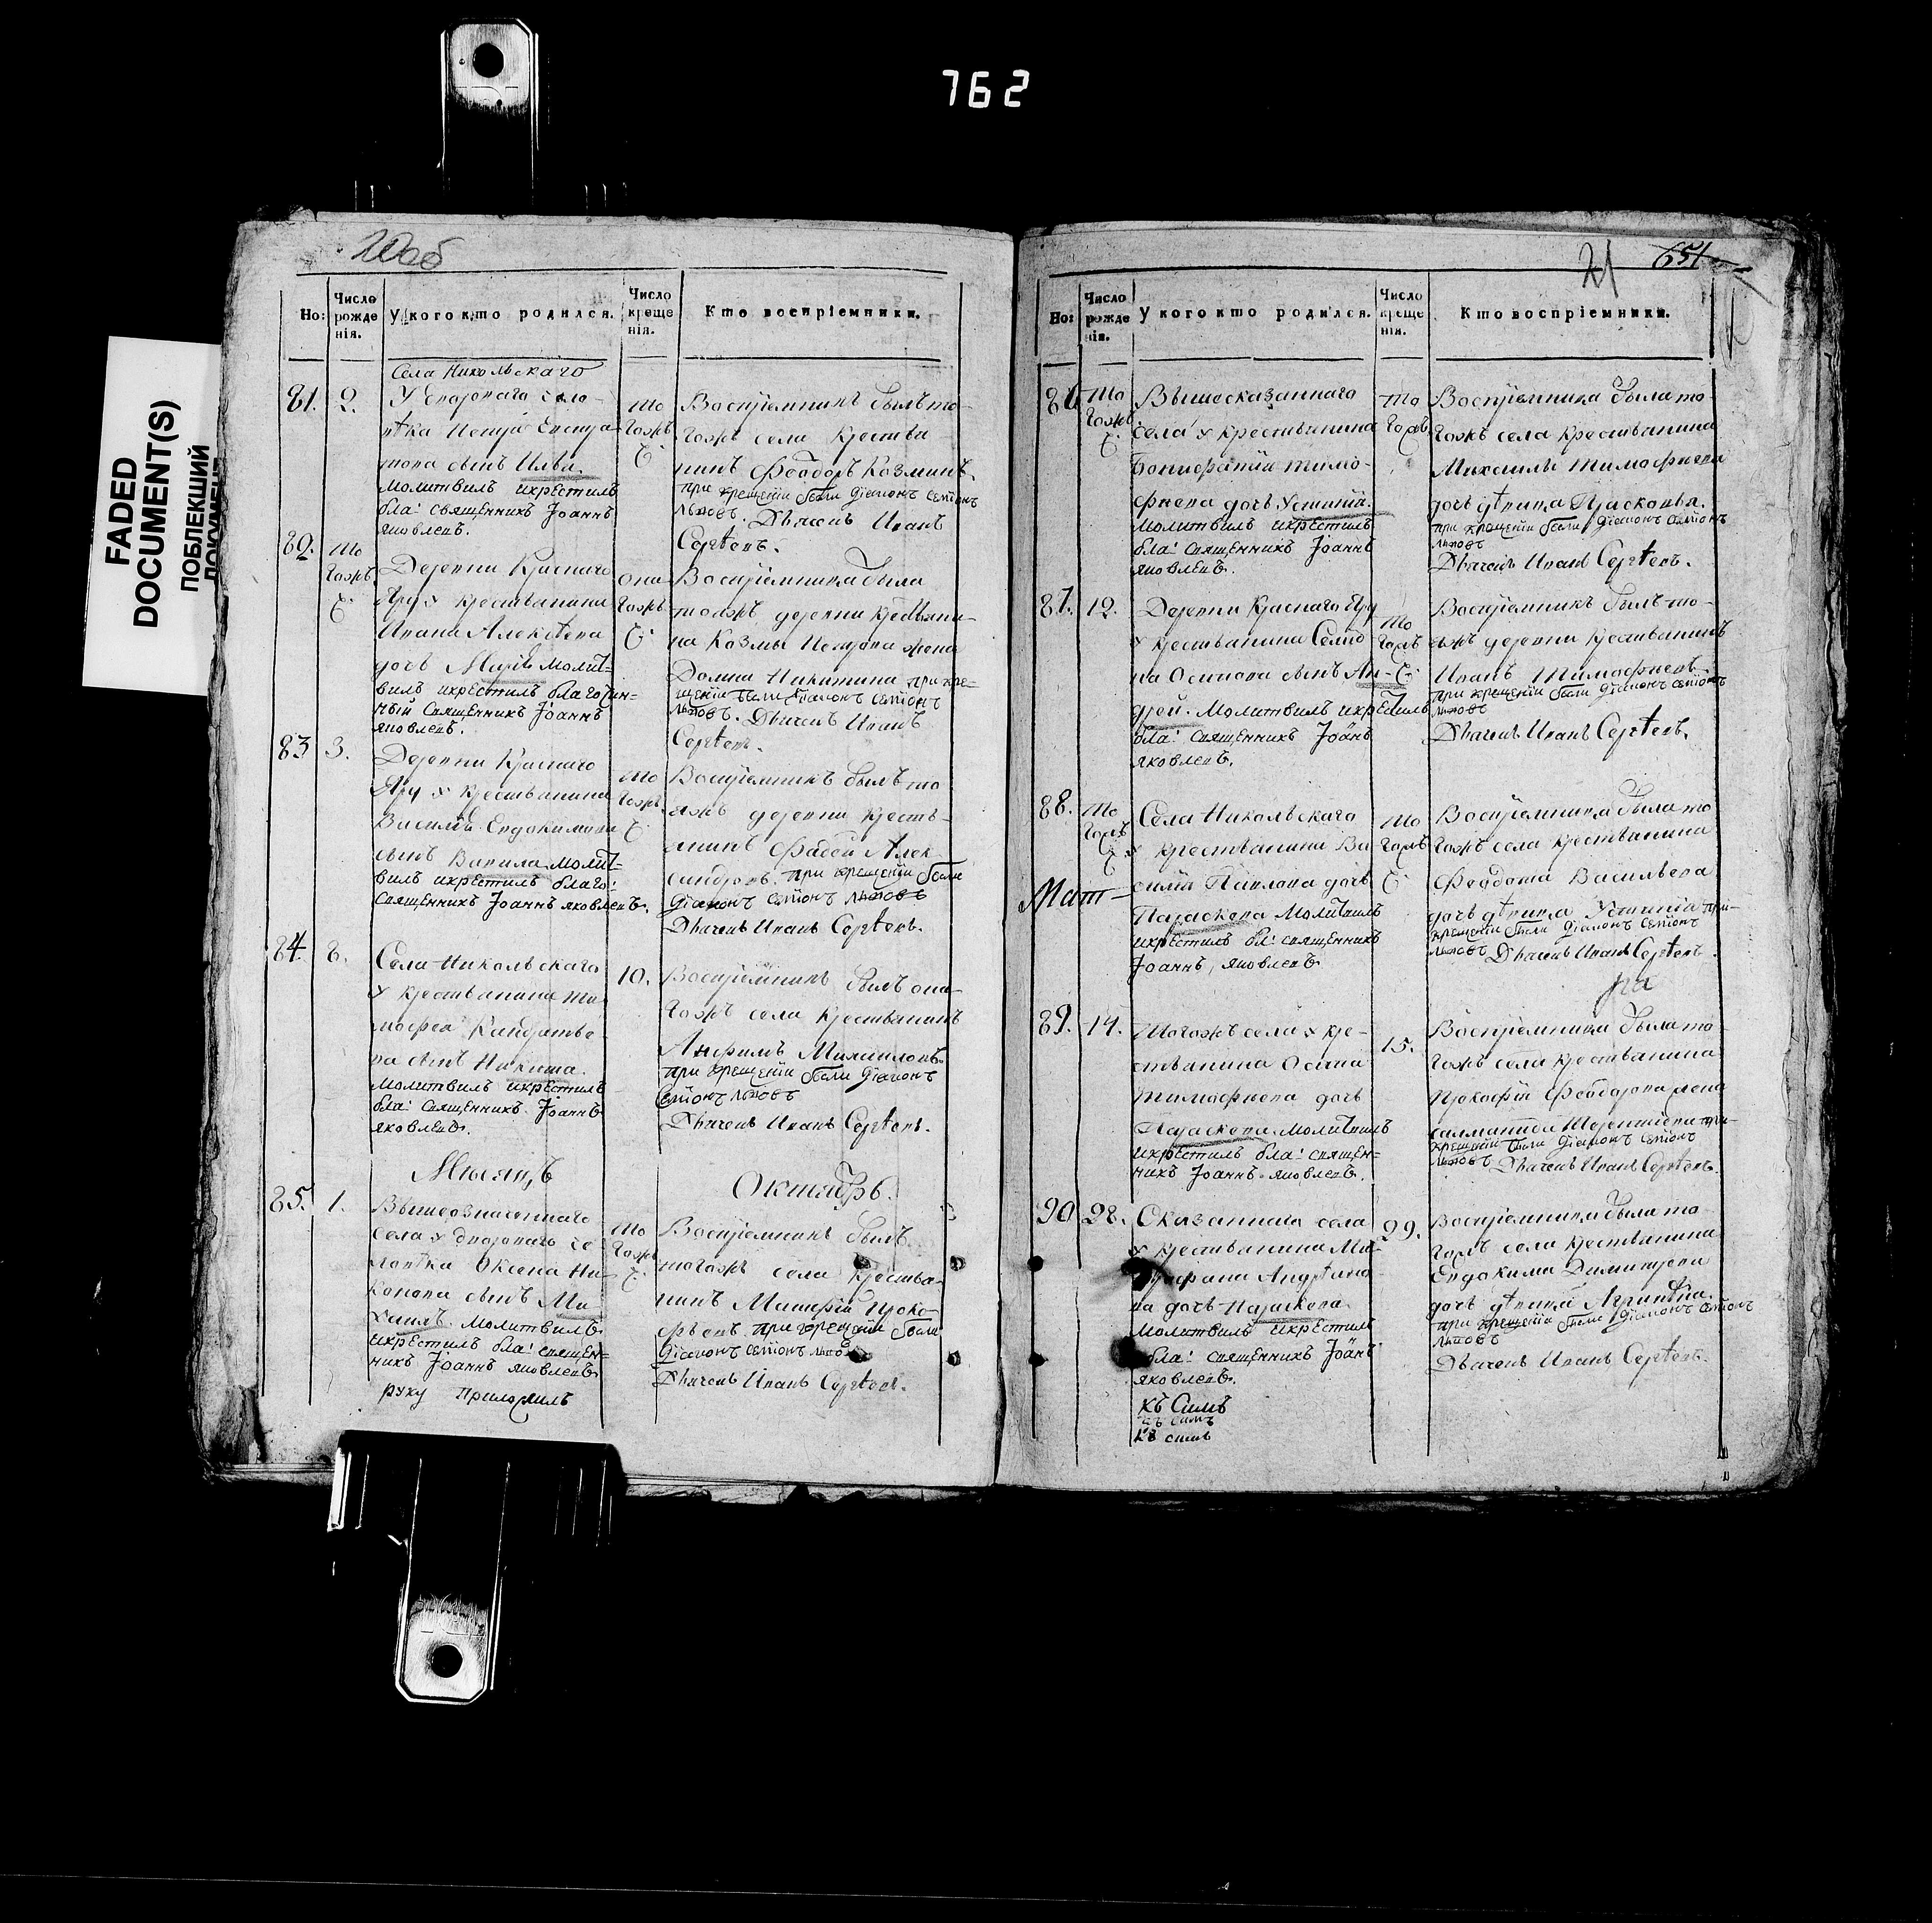 762
FADED
DOCUMENT(S)
ПОБЛЕКШИЙ
ДОКУМЕНТ
20об
Но:
Число рожде нія.
У кого кто родился.
Число креще нія.
Кто воспріемники.
Села Никольскаго
81.
2.
У дворового чело-
вѣка Петра
сынъ Илья.
молитвилъ икрестилъ
бла: священникъ Іоаннъ
яковлевъ.
то
гожъ
Воспріемникъ былъ то-
гожъ села крестья
нинъ Феодоръ Козминъ
при крещеніи были діаконъ семіонъ
львовъ. Дьячекъ Иванъ
Сергѣевъ.
82.
то
гожъ
Деревни Краснаго
Яру у крестьянина
Ивана Алексѣева
дочь Марія молит-
вилъ икрестилъ благочин-
ный священникъ Іоаннъ
яковлевъ.
она
гожъ
Воспріемница была
тояжъ деревни крестьяни-
на Козмы Петрова жена
Домна Никитина при кре-
щеніи были діаконъ семіонъ
львовъ. Дьячекъ Иванъ
Сергѣевъ.
83
3.
Деревни Краснаго
Яру у крестьянина
Василія Евдокимова
сынъ Вавила молит-
вилъ икрестилъ благо:
священникъ Іоаннъ яковлевъ.
то
гожъ
Воспріемникъ былъ то
яжъ деревни кресть-
янинъ Фадей Алек-
сандровъ. при крещеніи были
діаконъ семіонъ львовъ
Дьячекъ Иванъ Сергѣевъ.
84.
8.
Села Никольскаго
у крестьянина Ти-
мофея Кондратье-
ва сынъ Никита.
молитвилъ икрестилъ
бла: священникъ Іоаннъ
яковлевъ.
10.
Воспріемникъ былъ она-
гожъ села крестьянинъ
Анфимъ Михаиловъ.
при крещеніи были діаконъ
семіонъ львовъ
Дьячекъ Иванъ Сергѣевъ.
Мѣсяцъ
Октябрь.
85.
1.
Вышеозначеннаго
села у двороваго че-
ловѣка Ни-
конова сынъ Ми-
хаилъ. молитвилъ
икрестилъ бла: священ-
никъ Іоаннъ яковлевъ
руку приложилъ
то
гожъ
Воспріемникъ былъ
тогожъ села крестья-
нинъ Матфій Проко-
фьевъ. при крещеніи были
діаконъ семіонъ львовъ
Дьячекъ Иванъ Сергѣевъ.
21
651
Но:
Число рожде нія.
У кого кто родился.
Число креще нія.
Кто воспріемники.
86
то
гожъ
Вышесказаннаго
села у крестьянина
Бонифатія Тимо-
фѣева дочь Устинія.
молитвилъ икрестилъ
бла: священникъ Іоаннъ
яковлевъ.
то
гожъ
Воспріемница была то-
гожъ села крестьянина
Михаилы Тимофѣева
дочь дѣвица Прасковья.
при крещеніи были діаконъ семіонъ
львовъ
Дьячекъ Иванъ Сергѣевъ.
87.
12.
Деревни Краснаго Яру
у крестьянина Семіо-
на Осипова сынъ Ан-
дрей. молитвилъ икрестилъ
бла: священникъ Іоанъ
яковлевъ.
то
гожъ
Воспріемникъ былъ то-
яжъ деревни крестьянинъ
Иванъ Тимофѣевъ.
при крещеніи были діаконъ семіонъ
львовъ
Дьячекъ Иванъ Сергѣевъ.
88.
то
гожъ
Села Никольскаго
у крестьянина Ва
силія Павлова дочь
Параскева молитвилъ
икрестилъ бл: священникъ
Іоаннъ яковлевъ
то
гожъ
Воспріемница была то
гожъ села крестьянина
Феодота Васильева
дочь дѣвица Устинія при-
крещеніи были діаконъ семіонъ
львовъ Дьячекъ Иванъ Сергѣевъ
89.
14.
Тогожъ села у кре-
стьянина Осипа
Тимофѣева дочь
Параскева. молитвилъ
икрестилъ бла: священ-
никъ Іоаннъ яковлевъ.
15.
Воспріемница была то-
гожъ села крестьянина
Прокофія Феодорова жена
при-
крещеніи были діаконъ семіонъ
львовъ Дьячекъ Иванъ Сергѣевъ.
90
28.
Сказаннаго села
у крестьянина Ми-
трофана Андрѣяно-
ва дочь Параскева
молитвилъ икрестилъ
бла: священникъ Іоанъ
яковлевъ.
къ Симъ
къ симъ
къ симъ
29.
Воспріемница была то-
гожъ села крестьянина
Евдокима Димитріева
дочь дѣвица
при крещеніи были діаконъ семіонъ
львовъ
Дьячекъ Иванъ Сергѣевъ.